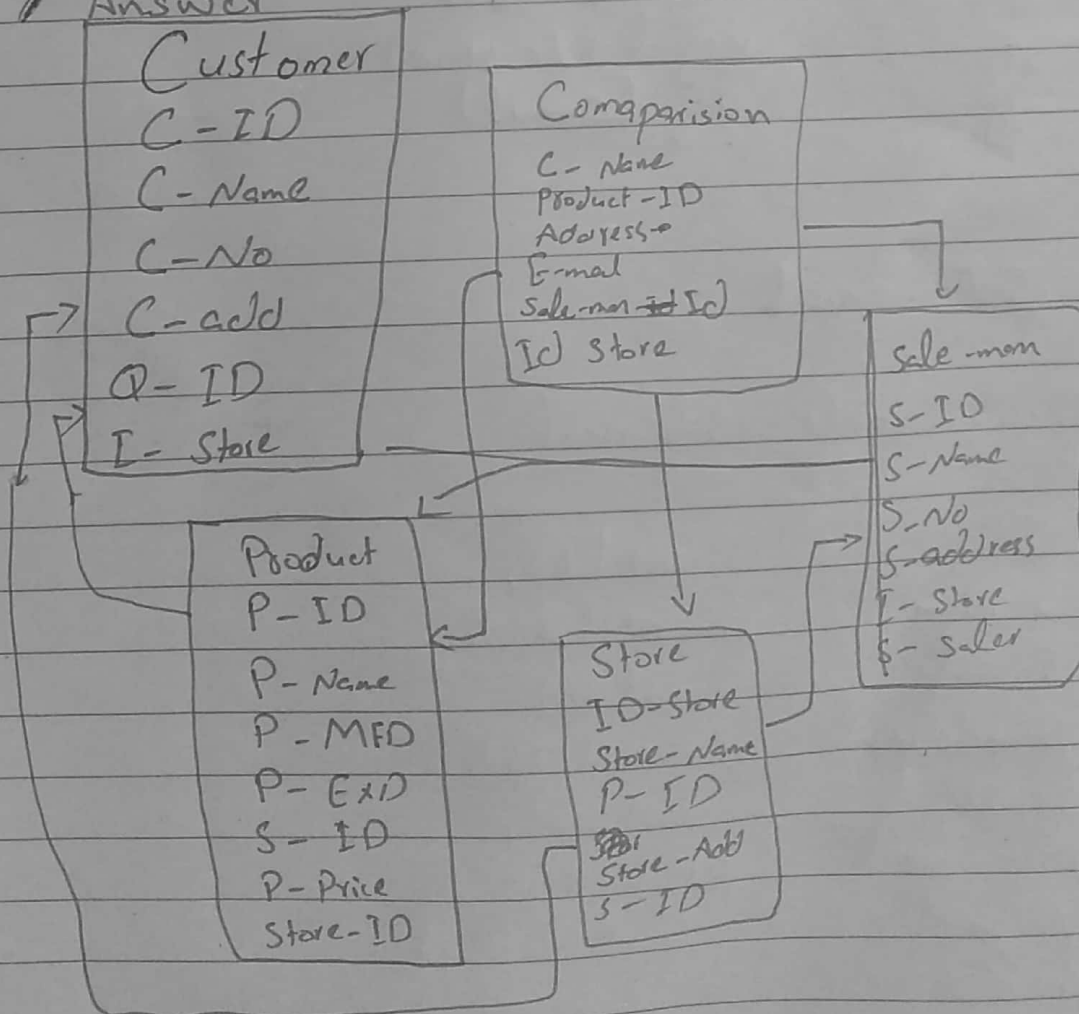 Answer
Customer
C-ID
C-Name
C-No
C-add
Q-ID
I-Store
Comaparision
C-Name
Product-ID
Address
E-mal
Sale-man Id
Id Store
Sale-man
S-ID
S-Name
S-No
S-address
I-Store
S-Saler
Product
P-ID
P-Name
P-MFD
P-ExD
S-ID
P-Price
Store-ID
Store
ID-Store
Store-Name
P-ID
Store-Add
S-ID